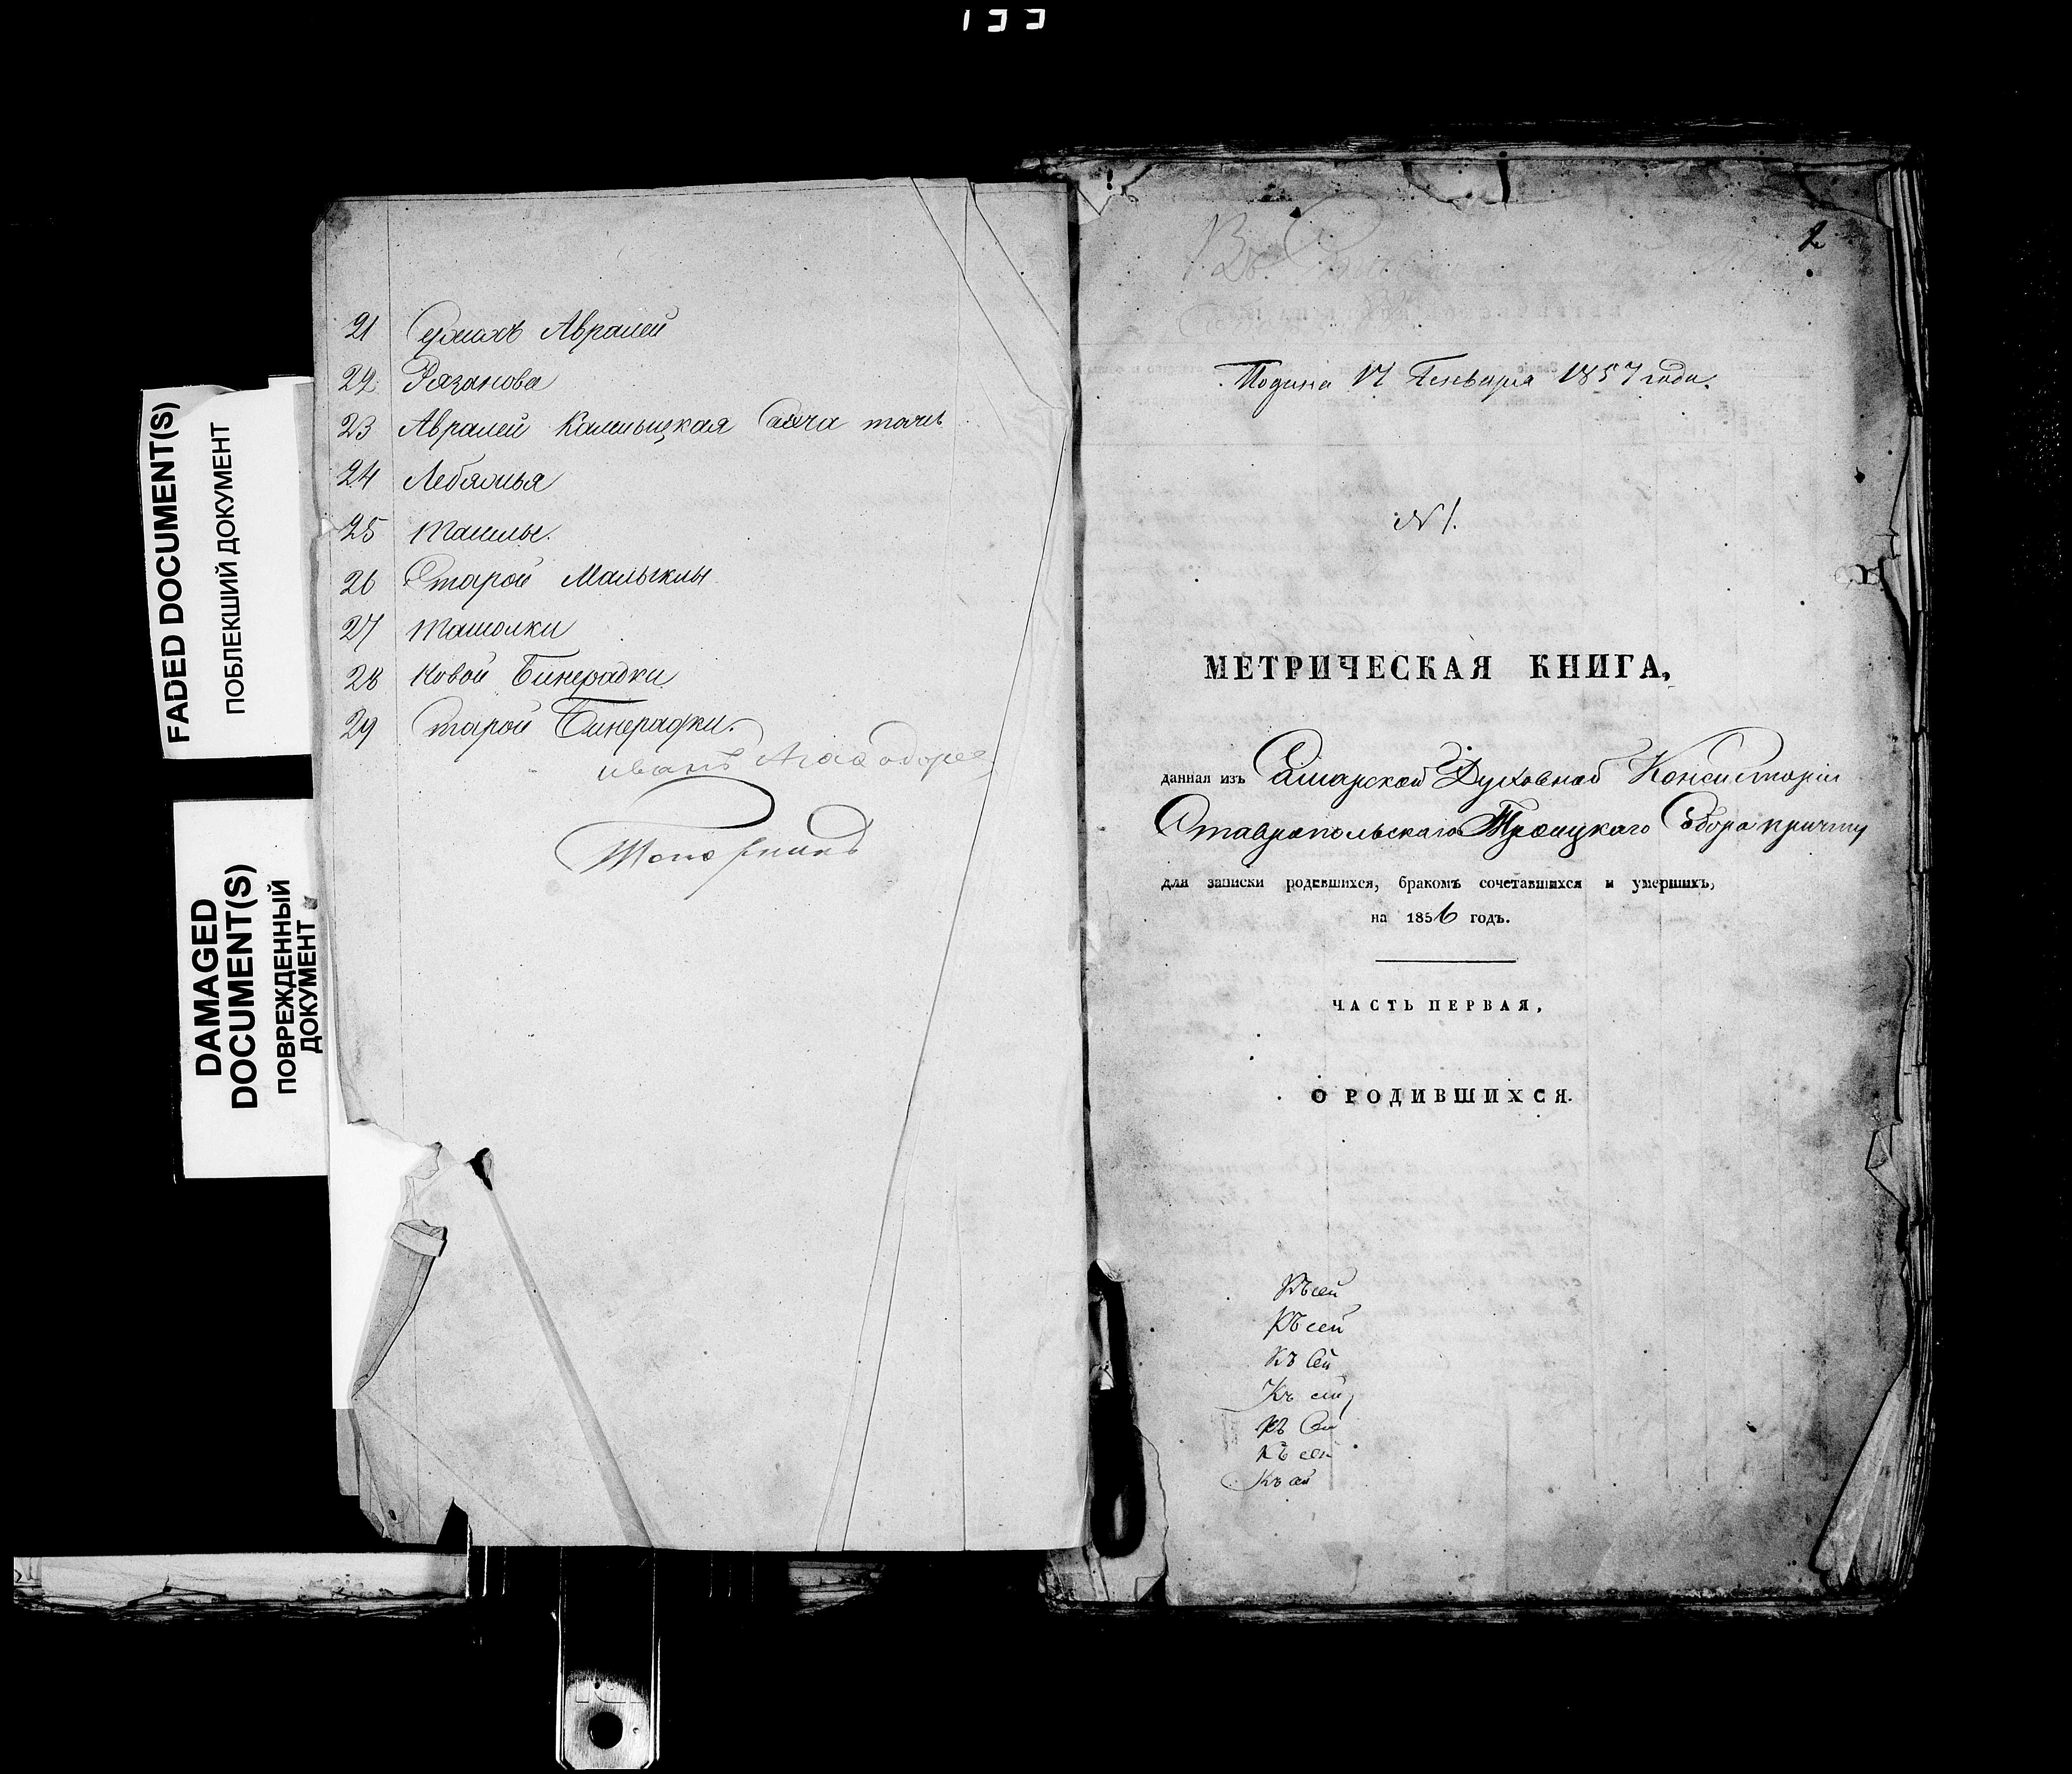 FADED DOCUMENT(S)
ПОБЛЕКШИЙ ДОКУМЕНТ
DAMAGED
DOCUMENT(S)
ПОВРЕЖДЕННЫЙ
ДОКУМЕНТ
21 Сухихъ Авралей
22 Рязанова
23 Авралей Калмыцкая Сахча тожъ
24 Лебяжья
25 Ташлы.
26 Старой Малыклы
27 Ташолки
28 Новой Бинерадки
29 Старой Бинерадки.
иванъ
2
Подана 17 Генваря 1857 года.
N 1.
МЕТРИЧЕСКАЯ КНИГА,
данная изъ Самарской Духовной Консисторіи
Ставропольскаго Троицкаго Собора причту
для записки родившихся, бракомъ сочетавшихся и умершихъ,
на 1856 годъ.
ЧАСТЬ ПЕРВАЯ,
О РОДИВШИХСЯ.
Къ сей
Къ сей
Къ сей
Къ сей
Къ сей
Къ сей
Къ сей